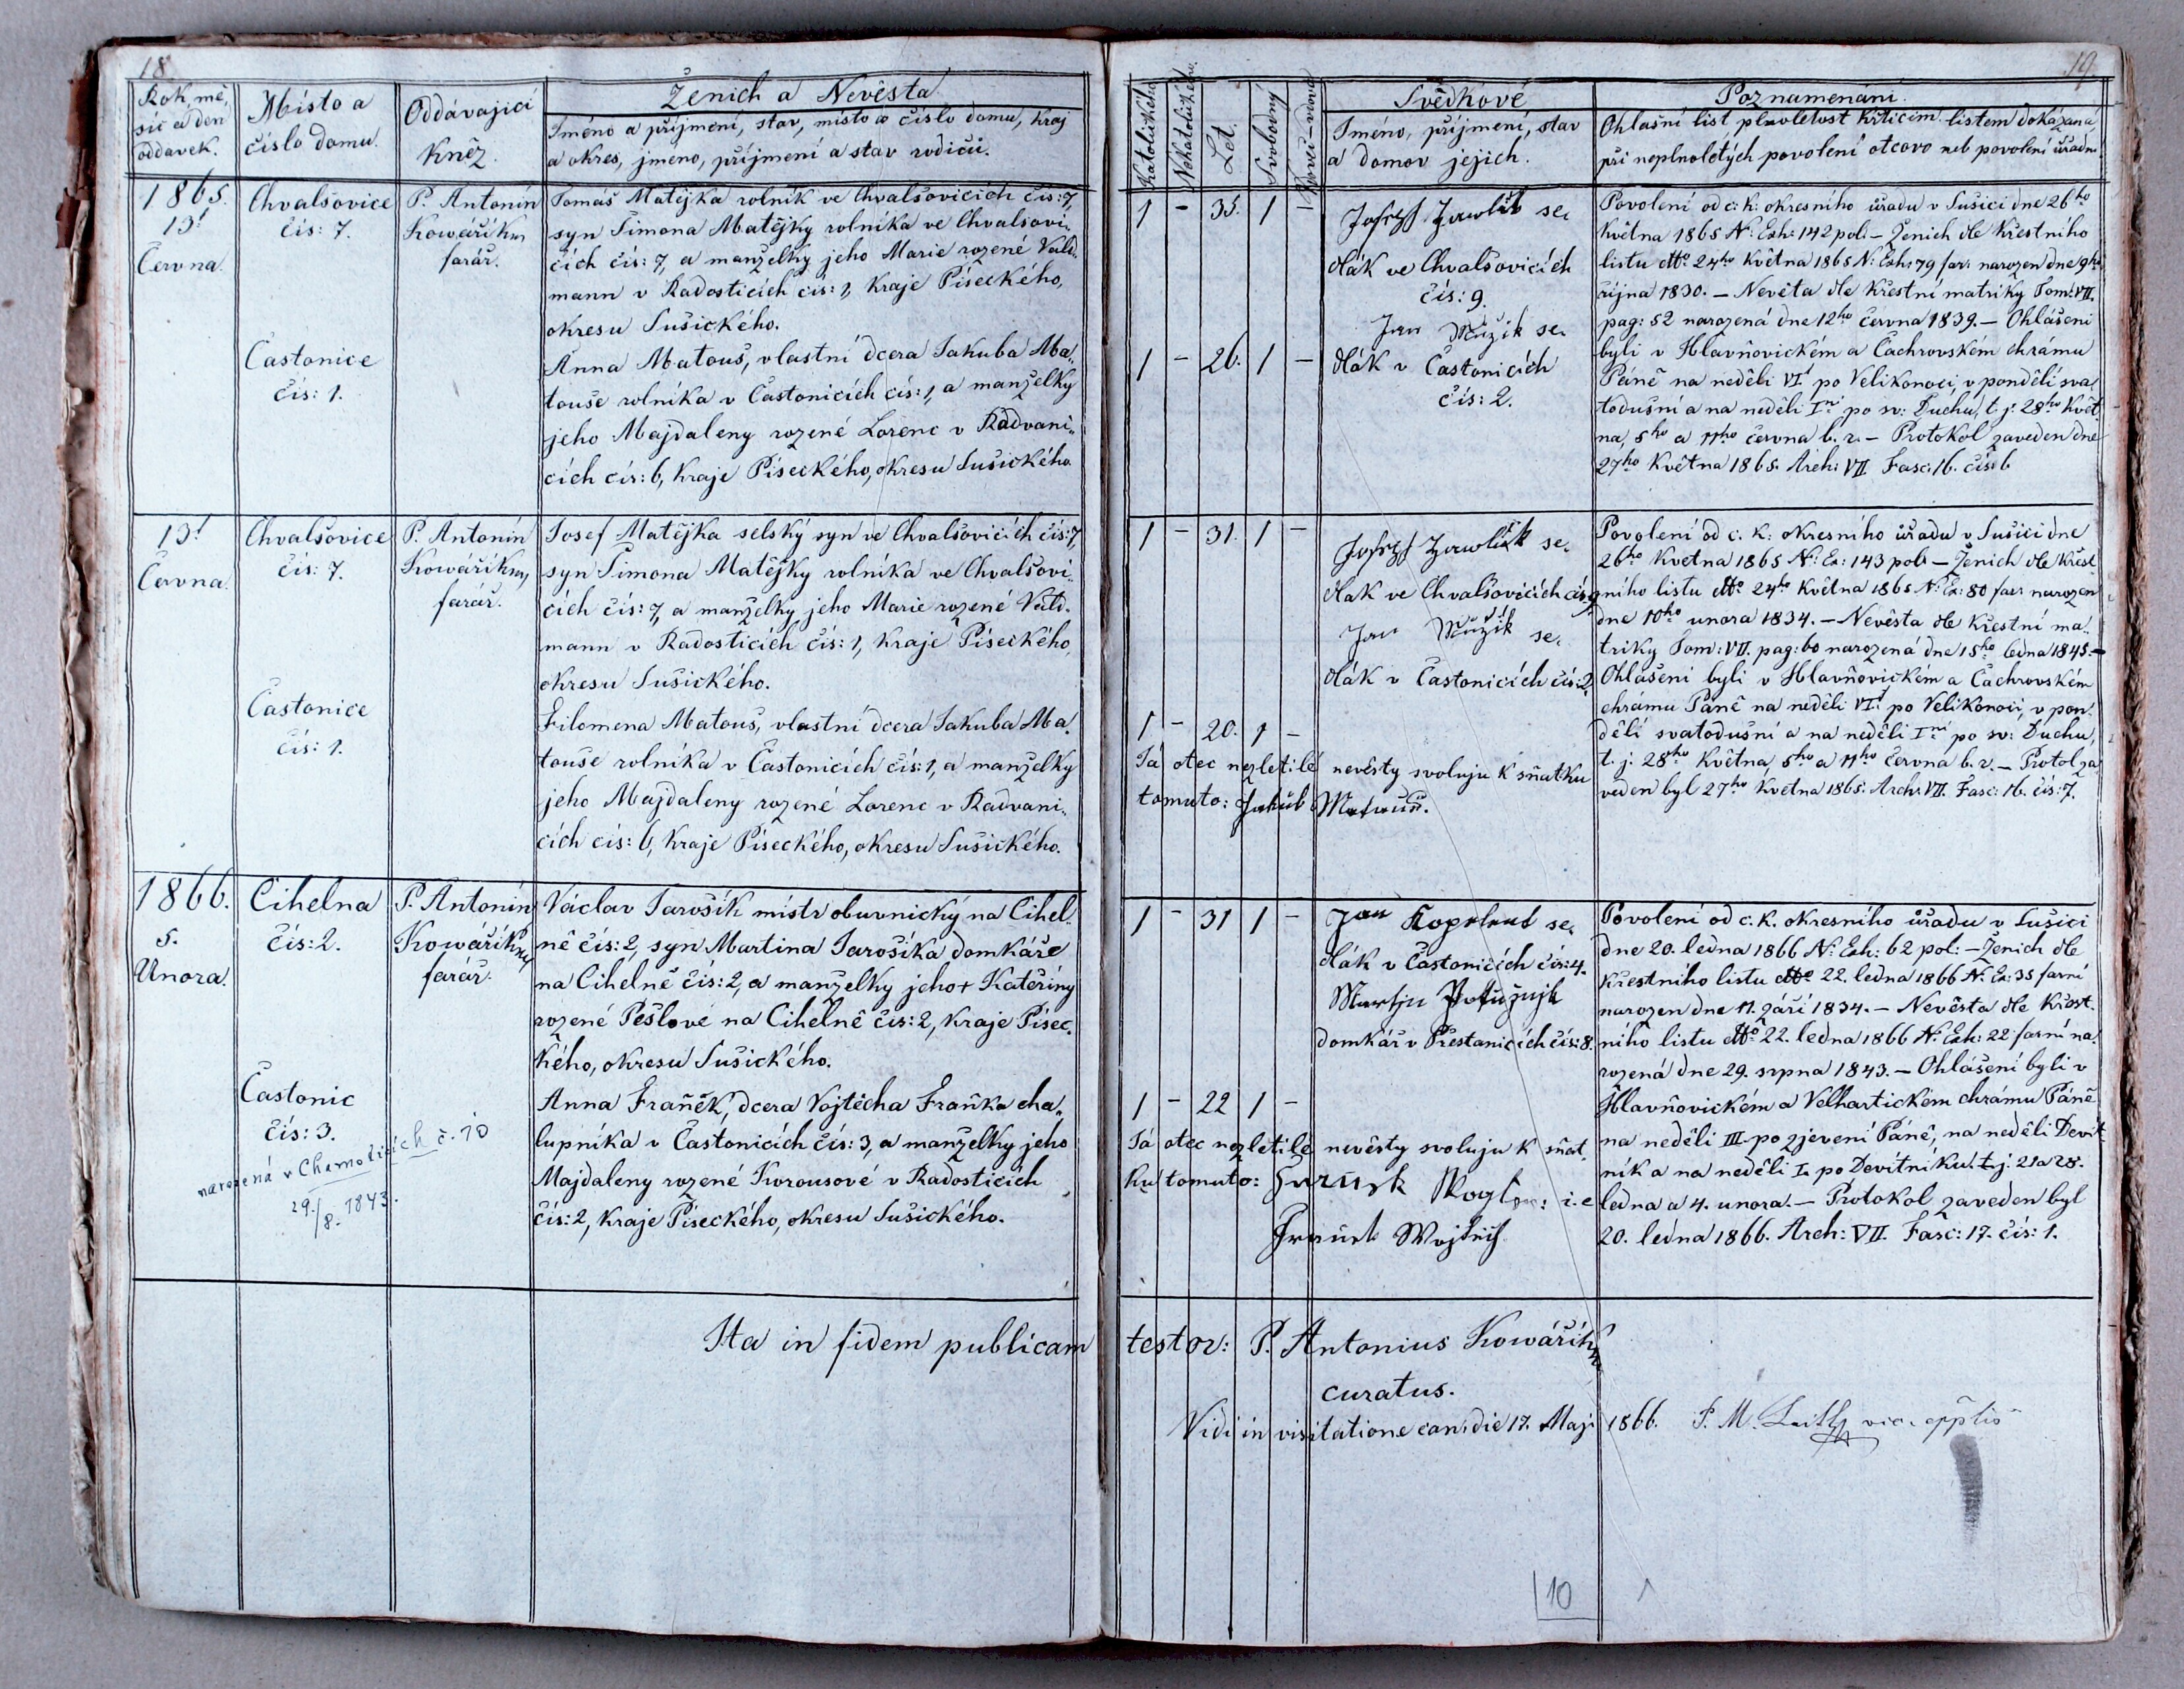 18
Rok, mě,
síc a den
oddavek.
Místo a
číslo domu.
Oddávající
Kněz.
Ženich a Nevěsta
Jméno a příjmení, stav, místo a číslo domu, kraj
a okres, jmeno, příjmení a stav rodičů.
1865.
13!
Června.
Chvalšovice
čís: 7.
P. Antonín
Kowářík
farář.
Tomáš Matějka rolník ve Chvalšovicích čís: 7,
syn Šimona Matějky rolníka ve Chvalšovi„
cích čís: 7, a manželky jeho Marie rozené Vald„
mann v Radosticích čís: 1, Kraje Píseckého,
okresu Sušického.
Častonice
čís: 1.
Anna Matouš, vlastní dcera Jakuba Ma„
touše rolníka v Častonicích čís: 1, a manželky
jeho Majdaleny rozené Lorenc v Radvani„
cích čís: 6, Kraje Píseckého, okresu Sušického.
13!
Června.
Chvalšovice
čís: 7.
P. Antonín
Kowářík
farář.
Josef Matějka selský syn ve Chvalšovicích čís: 7,
syn Šimona Matějky rolníka ve Chvalšovi„
cích čís: 7, a manželky jeho Marie rozené Vald„
mann v Radosticích čís: 1, Kraje Píseckého,
okresu Sušického.
Častonice
čís: 1.
Filomena Matouš, vlastní dcera Jakuba Ma„
touše rolníka v Častonicích čís: 1, a manželky
jeho Majdaleny rozené Lorenc v Radvani„
cích čís: 6, Kraje Píseckého, okresu Sušického.
1866.
5.
Unora.
Cihelna
čís: 2.
P. Antonín
Kowářík
farář.
Václav Jarošík mistr obuvnický na Cihel„
ně čís: 2, syn Martina Jarošíka domkáře
na Cihelně čís: 2, a manželky jeho + Kateřiny
rozené Pešlové na Cihelně čís: 2, Kraje Písec„
kého, okresu Sušického.
Častonic
čís: 3.
narozená v Chamoticích č. 10
29./8. 1843.
Anna Fraňěk, dcera Vojtěcha Fraňka cha„
lupníka v Častonicích čís: 3, a manželky jeho
Majdaleny rozené Korousové v Radosticích
čís: 2, Kraje Píseckého, okresu Sušického.
Ita in fidem publicam
19
Katolického
Nekatolického
Let.
Svobodný
Vdovci - vdova
Svědkové
Jméno, příjmení, stav
a domov jejich.
Poznamenání.
Ohlašní list plnoletost křticím listem dokázaná
při neplnoletých povolení otcovo neb povolení úřadní
1 - 35. 1 -
Josef se„
dlák ve Chvalšovicích
čís: 9.
1 - 26. 1 -
Jan Mužík se„
dlák v Častonicích
čís: 2.
Povolení od c: k: okresního úřadu v Sušici dne 26ho
května 1865 N: Exh: 142 pol: - Ženich dle křestního
listu dtto 24ho Května 1865 N: Exh: 79 far: narozen dne 9ho
října 1830. - Nevěta dle křestní matriky Tom: VII.
pag: 52 narozená dne 12ho června 1839. - Ohlášeni
byli v Hlavňovickém a Čachrovském chrámu
Páně na neděli VI. po Velikonoci, v pondělí sva„
todušní a na neděli Iní po sv: Duchu, t. j: 28ho Květ„
na, 5ho a 11ho června b. r. - Protokol zaveden dne
27ho Května 1865. Arch: VII Fasc: 16. čís: 6
1 - 31. 1 -
Josef se„
dlak ve Chvalšovicích čís: 9
Jan Mužík se„
dlák v Častonicích čís: 2.
1 - 20. 1 -
Já otec nezletilé nevěsty svoluju K sňatku
tomuto: Jakub Matauš.
Povolení od c. k: okresního úřadu v Sušici dne
26ho Května 1865 N: Ex: 143 pol: - Ženich dle křest„
ního listu dtto 24ho Května 1865 N: Ex: 80 far: narozen
dne 10ho unora 1834. - Nevěsta dle křestní ma„
triky Tom: VII. pag: 60 narozená dne 15ho ledna 1845. -
Ohlášeni byli v Hlavňovickém a Čachrovském
chrámu Páně na neděli VI. po Velikonoci, v pon„
dělí svatodušní a na neděli Iní po sv: Duchu,
t. j: 28ho Května, 5ho a 11ho června b. r. - Protol za„
veden byl 27ho Května 1865. Arch: VII. Fasc: 16. čís: 7.
1 - 31 1 -
Jan se„
dlák v Častonicích čís: 4.
Martin
domkář v Přestanicích čís: 8.
1 - 22 1 -
Já otec nezletilé nevěsty svoluju K sňat„
ku tomuto: i. e
Povolení od c. k. okresního úřadu v Sušici
dne 20. ledna 1866 N: Exh: 62 pol: - Ženich dle
Křestního listu dtto 22. ledna 1866 N: Ex: 35 farní
narozen dne 11. září 1834. - Nevěsta dle křest„
ního listu dtto 22. ledna 1866 N: Exh: 22 farní na„
rozená dne 29. srpna 1843. - Ohlášení byli v
Hlavňovickém a Velhartickém chrámu Páně
na neděli III. po zjevení Páně, na neděli Devít„
ník a na neděli I. po Devítníku. t. j. 21 a 28.
ledna a 4. unora. - Protokol zaveden byl
20. ledna 1866. Arch: VII. Fasc: 17. čís: 1.
testor: P. Antonius Kowářík
curatus.
Vidi in visitatione can: die 17. Maji 1866.
10